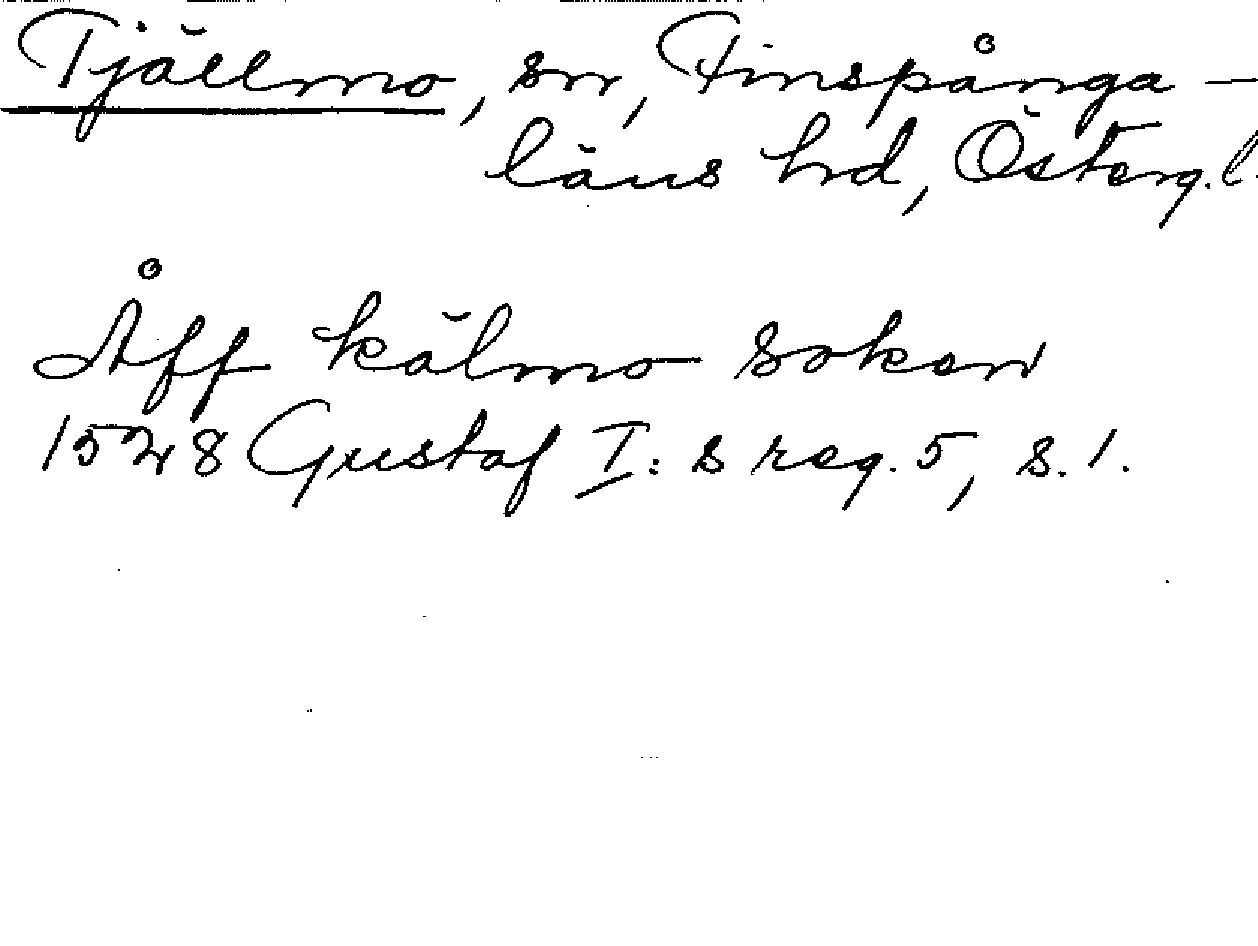 Tjällmo, sn, Finspånga-
läns hd, Österg.l.
Åff kälmo soken
1528 Gustaf I:s reg. 5, s. 1.